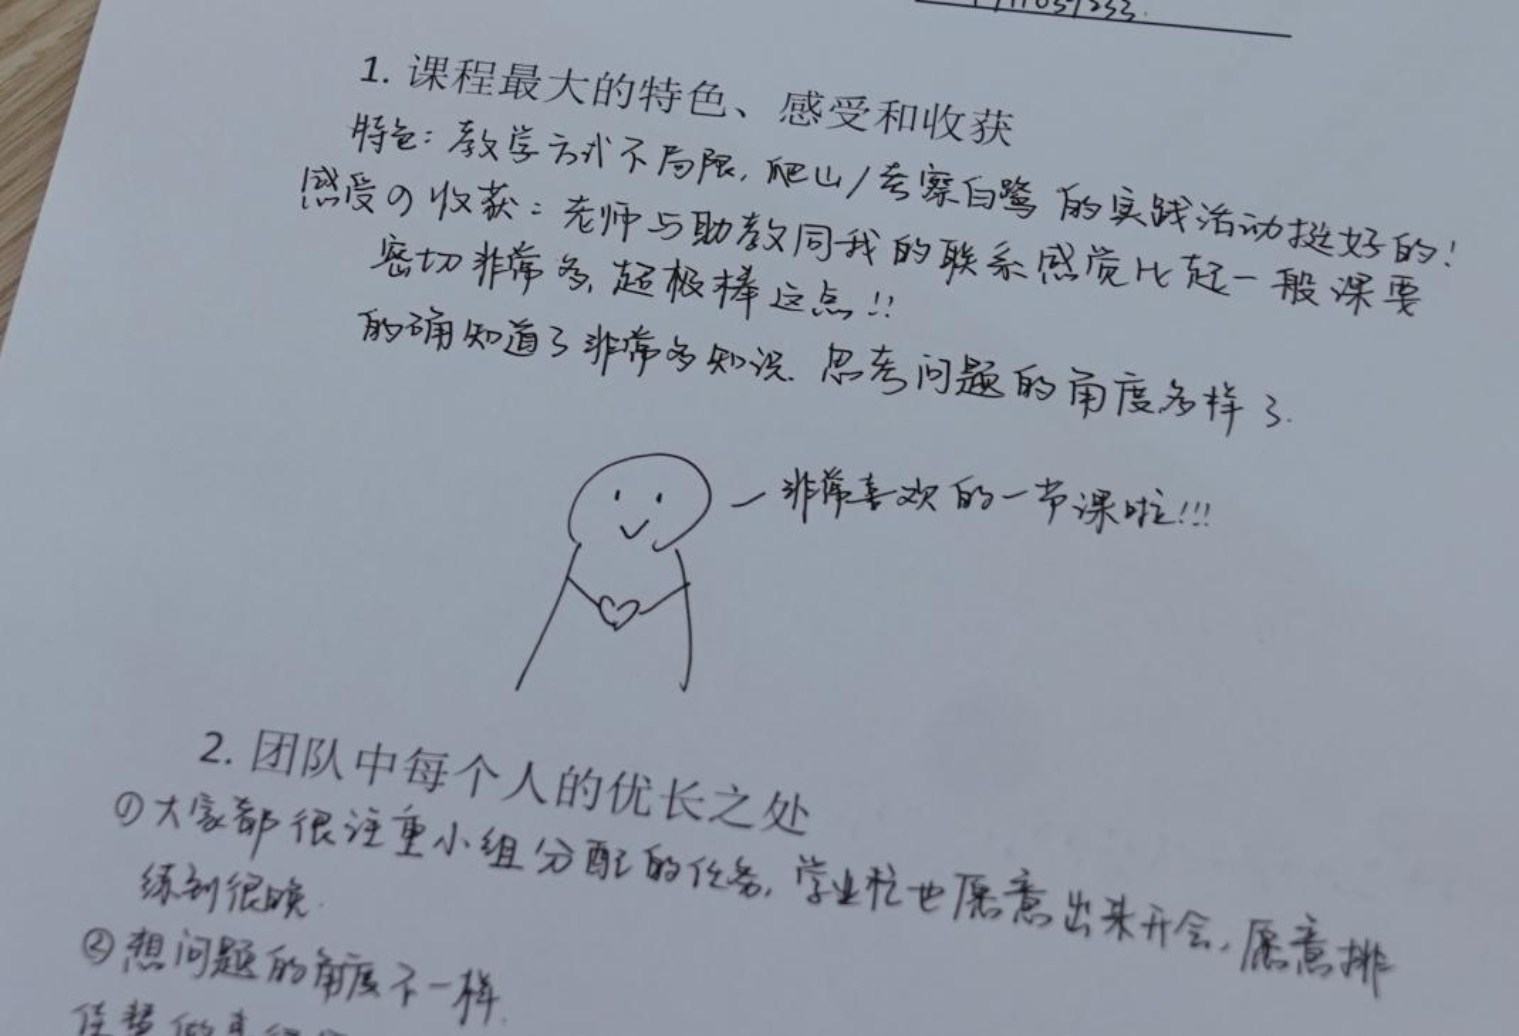 1. 课程最大的特色、感受和收获
特色：教学方式不局限，爬山/考察白鹭的实践活动挺好的！
感受の收获：老师与助教同我的联系感觉比起一般课要
密切非常多，超极棒这点!!
的确知道了非常多知识. 思考问题的角度多样了.
非常喜欢的一节课啦!!!
2. 团队中每个人的优长之处
①大家都很注重小组分配的任务，学业忙也愿意出来开会，愿意排
练到很晚.
②想问题的角度不一样.